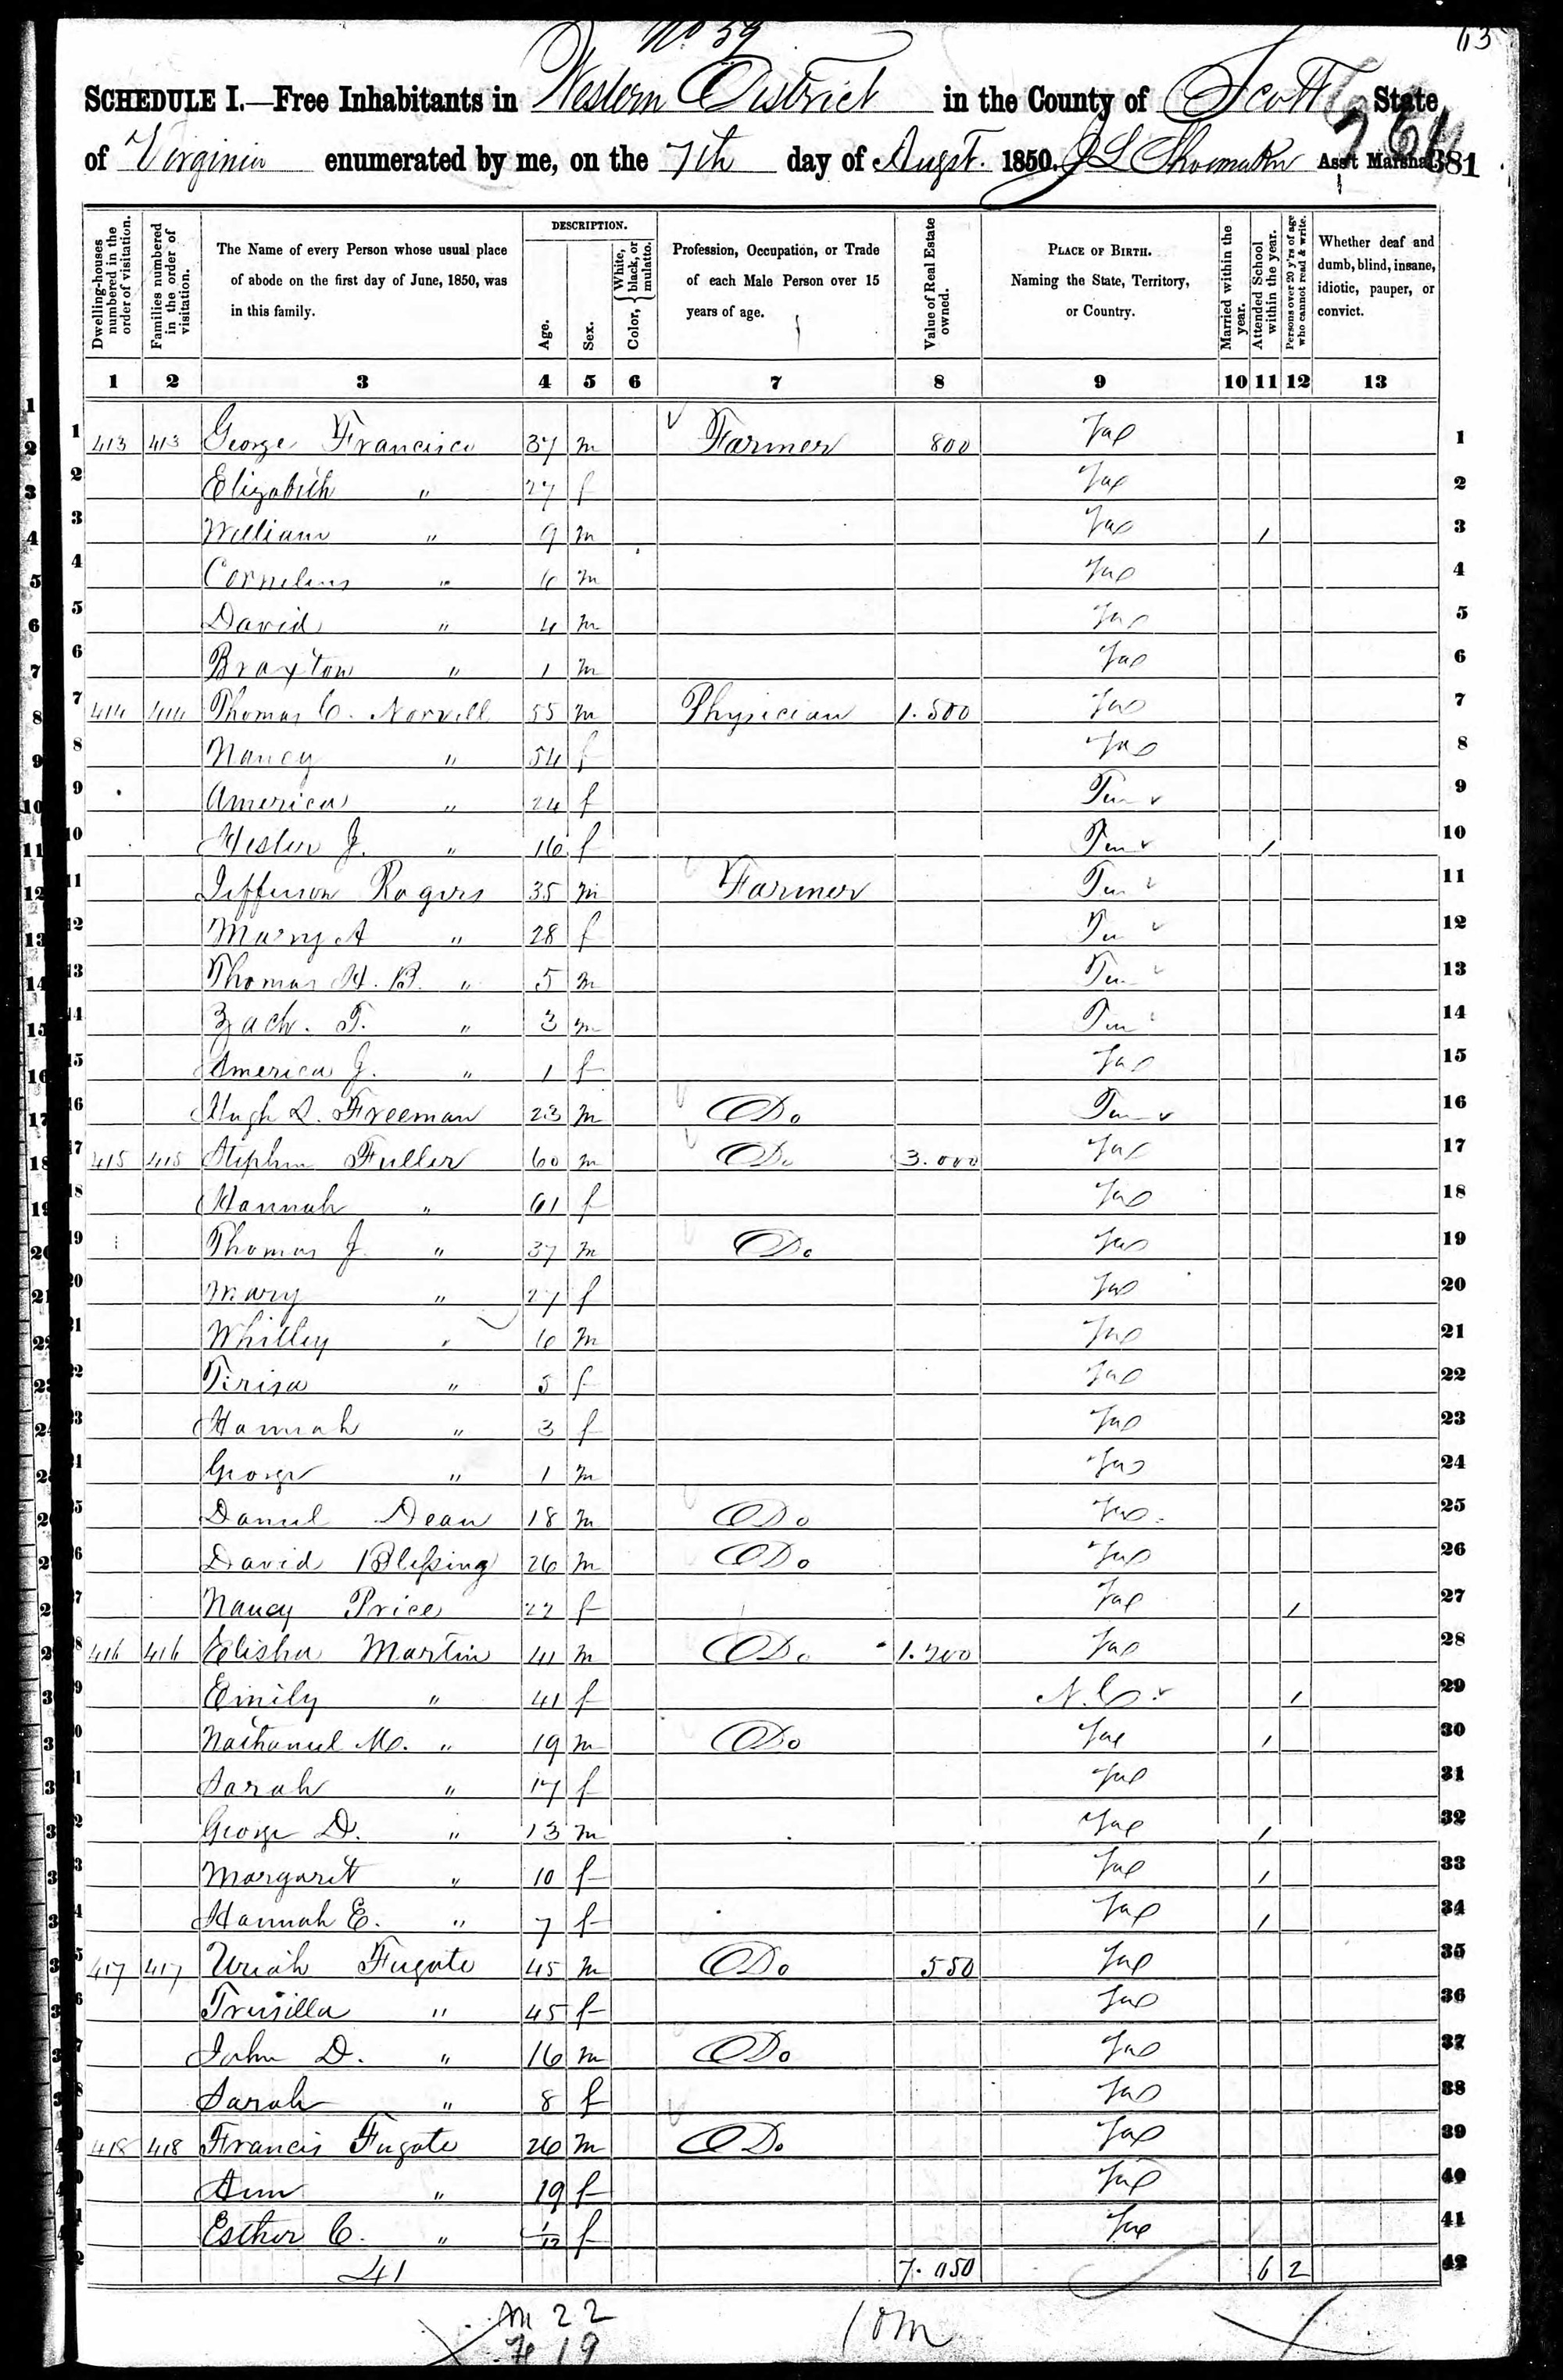 No 59
113
SCHEDULE I.—Free Inhabitants in Western District in the County of Scott State
of Virginia enumerated by me, on the 7th day of Augst. 1850. J L Shoemaker Ass't Marshal. 381
DESCRIPTION.
Dwelling-houses numbered in the order of visitation. Families numbered in the order of visitation. The Name of every Person whose usual place of abode on the first day of June, 1850, was in this family. Age. Sex. Color, { White, black, or mulatto. Profession, Occupation, or Trade of each Male Person over 15 years of age. Value of Real Estate owned. PLACE OF BIRTH. Naming the State, Territory, or Country. Married within the year. Attended School within the year. Persons over 20 y'rs of age who cannot read & write. Whether deaf and dumb, blind, insane, idiotic, pauper, or convict.
1 2 3 4 5 6 7 8 9 10 11 12 13
1 413 413 George Francisco 37 m Farmer 800 Va 1
2 Elizabeth " 27 f Va 2
3 William " 9 m Va / 3
4 Cornelius " 6 m Va 4
5 David " 4 m Va 5
6 Braxton " 1 m Va 6
7 414 414 Thomas C. Norvell 55 m Physician 1.500 Va 7
8 Nancy " 54 f Va 8
9 America " 24 f Ten 9
10 Hester J. " 16 f Ten / 10
11 Jefferson Rogers 35 m Farmer Ten 11
12 Mary A " 28 f Ten 12
13 Thomas H. B. " 5 m Ten 13
14 Zach. T. " 3 m Ten 14
15 America J. " 1 f Va 15
16 Hugh L. Freeman 23 m Do Ten 16
17 415 415 Stephen Fuller 60 m Do 3.000 Va 17
18 Hannah " 61 f Va 18
19 Thomas J. " 37 m Do Va 19
20 Mary " 27 f Va 20
21 Whitley " 6 m Va 21
22 Terisa " 5 f Va 22
23 Hannah " 3 f Va 23
24 George " 1 m Va 24
25 Daniel Dean 18 m Do Va 25
26 David Blessing 26 m Do Va 26
27 Nancy Price 22 f Va / 27
28 416 416 Elisha Martin 41 m Do 1.200 Va 28
29 Emily " 41 f N.C. / 29
30 Nathaniel M. " 19 m Do Va / 30
31 Sarah " 17 f Va 31
32 George D. " 13 m Va / 32
33 Margaret " 10 f Va / 33
34 Hannah E. " 7 f Va / 34
35 417 417 Uriah Fugate 45 m Do 550 Va 35
36 Trusilla " 45 f Va 36
37 John D. " 16 m Do Va 37
38 Sarah " 8 f Va 38
39 418 418 Francis Fugate 26 m Do Va 39
40 Ann " 19 f Va 40
41 Esther C. " 1/12 f Va 41
41 7.050 6 2 42
M 22
F 19
10m